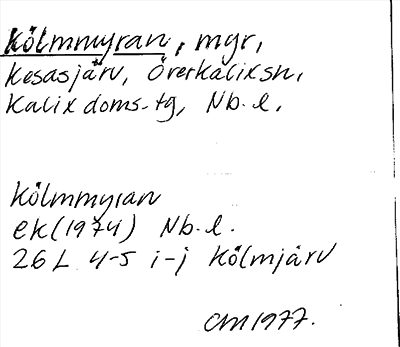 Kölmmyran, myr,
Kesasjärv, Överkalix sn,
Kalix doms-tg, Nb. l.
Kölmmyran
ek (1974) Nb. l.
26 L 4-5 i-j Kölmjärv
CM 1977.